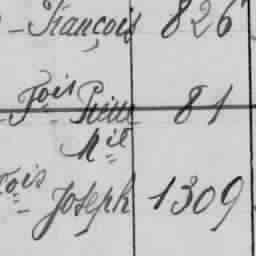 - François 826
- Fois Pierre 81
Mel
Fois - Joseph 1309